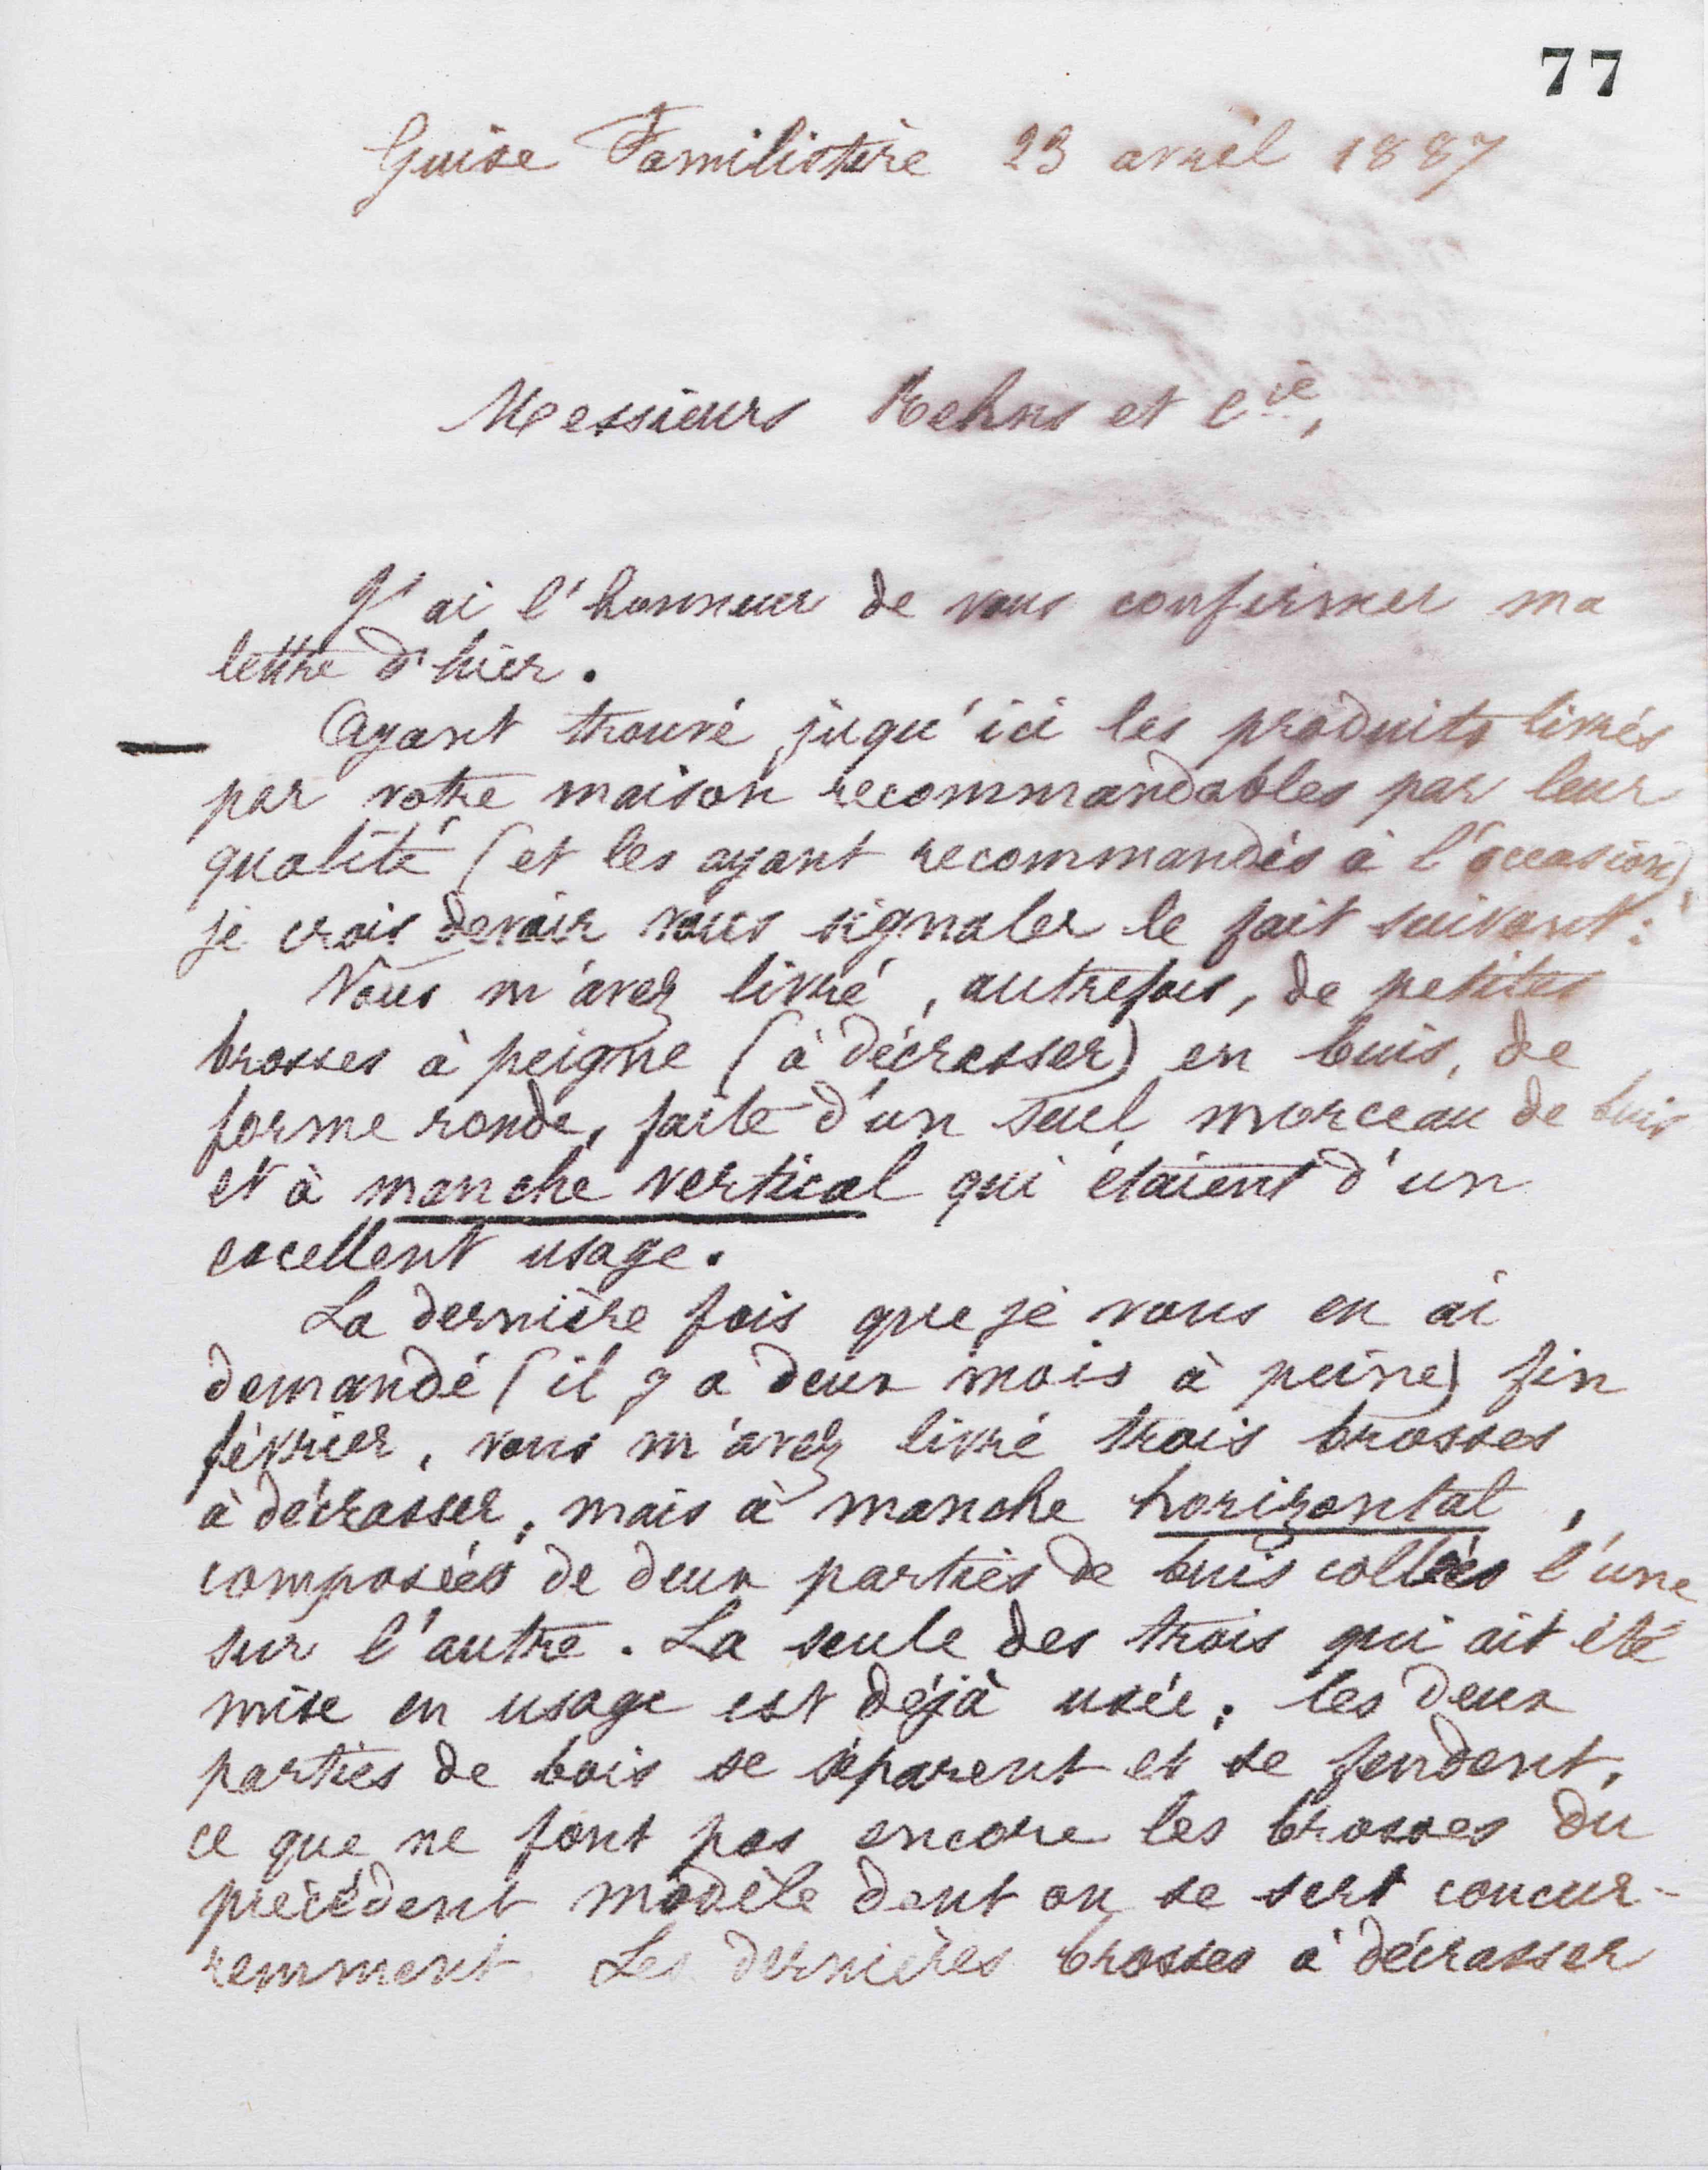 77
Guise Familistère 23 avril 1887
Messieurs Rehns et Cie,
J'ai l'honneur de vous confirmer ma
lettre d'hier.
Ayant trouvé juqu'ici les produits livrés
par votre maison recommandables par leur
qualité (et les ayant recommandés à l'occasion),
je crois devoir vous signaler le fait suivant :
Vous m'avez livré, autrefois, de petites
brosses à peigne (à décrasser) en buis, de
forme ronde, faite d'un seul morceau de buis
et à manche vertical qui étaient d'un
excellent usage.
La dernière fois que je vous en ai
demandé (il y a deux mois à peine) fin
février, vous m'avez livré trois brosses
à décrasser, mais à manche horizontal,
composées de deux parties de buis collées l'une
sur l'autre. La seule des trois qui ait été
mise en usage est déjà usée ; les deux
parties de bois se séparent et se fendent,
ce que ne font pas encore les brosses du
précédent modèle dont on se sert concur-
remment. Les dernières brosses à décrasser